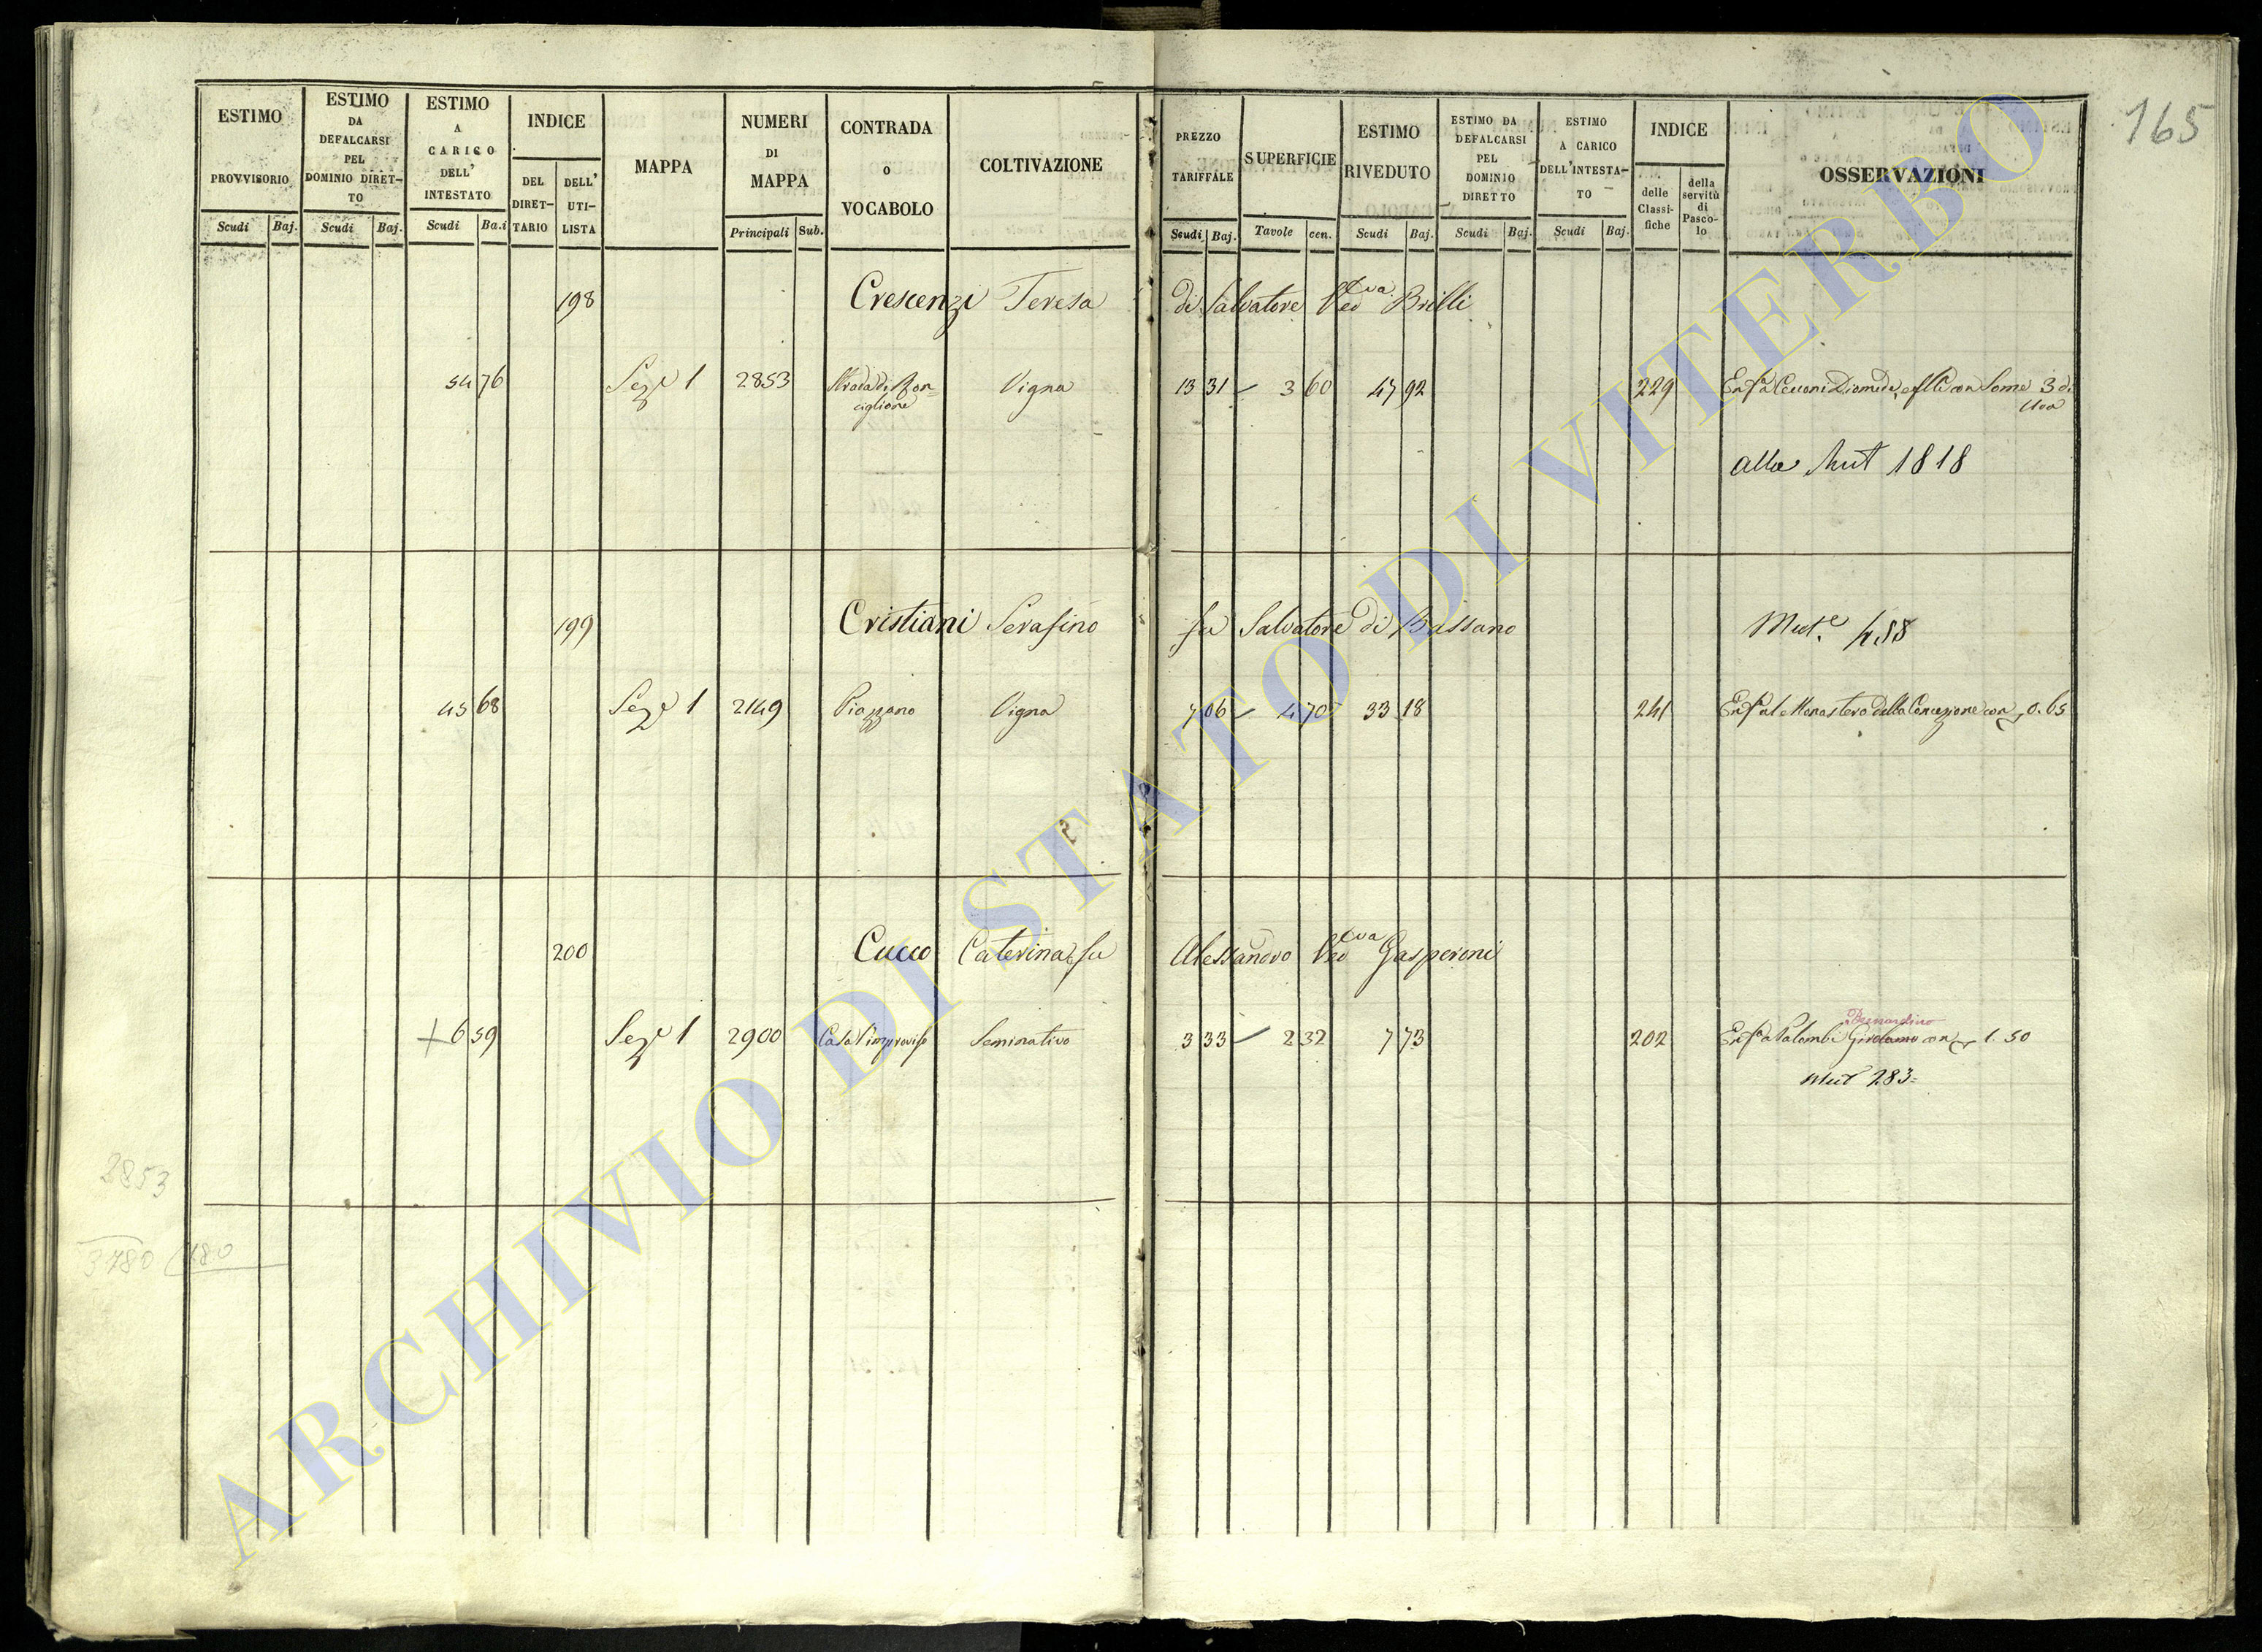 165
ESTIMO PROVVISORIO Scudi Baj.
ESTIMO DA DEFALCARSI PEL DOMINIO DIRET-TO Scudi Baj.
ESTIMO A CARICO DELL' INTESTATO Scudi Ba.i
INDICE DEL DIRET-TARIO DELL' UTI-LISTA
MAPPA
NUMERI DI MAPPA Principali Sub.
CONTRADA o VOCABOLO
COLTIVAZIONE
PREZZO TARIFFALE Scudi Baj.
SUPERFICIE Tavole cen.
ESTIMO RIVEDUTO Scudi Baj.
ESTIMO DA DEFALCARSI PEL DOMINIO DIRETTO Scudi Baj.
ESTIMO A CARICO DELL'INTESTA-TO Scudi Baj.
INDICE delle Classi-fiche della servitù di Pasco-lo
OSSERVAZIONI
198 Crescenzi Teresa di Salvatore Ved.va Brilli
54 76 Sez.e 1 2853 Strada di Ron=ciglione Vigna 13 31 3 60 47 92 229 Enf.a Cecconi Diomede, con Some 3 di
Uva
alla Mut 1818
199 Cristiani Serafino fu Salvatore di Bassano Mut.e 458
45 68 Sez.e 1 2149 Piazzano Vigna 7 06 4 70 33 18 241 Enf.a al Monastero della Concezione con 0.65
200 Cucco Caterina fu Alessandro Ved.va Gasperoni
Bernardino
6 59 Sez.e 1 2900 Casa Seminativo 3 33 2 32 7 73 202 Enf.a Palombi Girolamo con 1.50
Mut 283=
2853
3780 180
ARCHIVIO DI STATO DI VITERBO